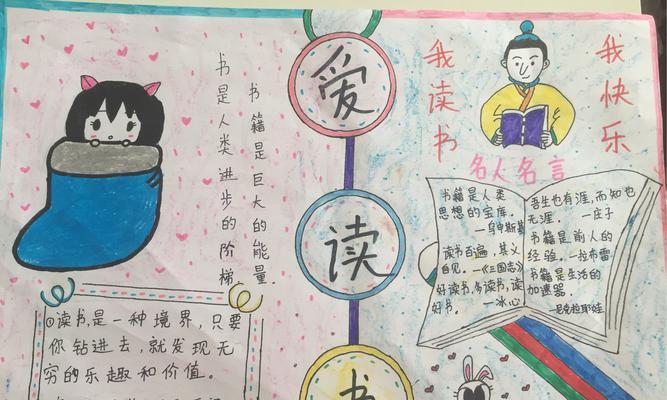 书是人类进步的阶梯.
书籍是巨大的能量.
①读书,是一种境界,只要
你钻进去,就发现无
穷的乐趣和价值。
爱
读
书
我读书
我快乐
名人名言
书籍是人类
思想的宝库.
—乌申斯基
读书百遍,其义
自见.—《三国志》
好读书,多读书,读
好书.—冰心
吾生也有涯,而知也
无涯.—庄子
书籍是前人的
经验.—拉布雷
书籍是生活的
加速器.
—尼克拉耶娃